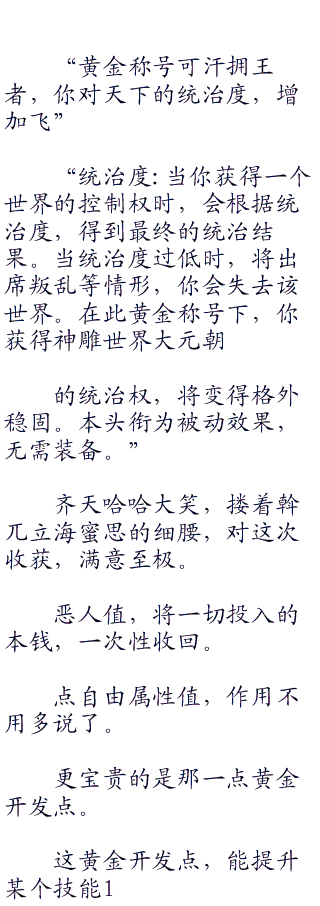 “黄金称号可汗拥王
者，你对天下的统治度，增
加飞”
“统治度：当你获得一个
世界的控制权时，会根据统
治度，得到最终的统治结
果。当统治度过低时，将出
席叛乱等情形，你会失去该
世界。在此黄金称号下，你
获得神雕世界大元朝
的统治权，将变得格外
稳固。本头衔为被动效果，
无需装备。”
齐天哈哈大笑，搂着斡
兀立海蜜思的细腰，对这次
收获，满意至极。
恶人值，将一切投入的
本钱，一次性收回。
点自由属性值，作用不
用多说了。
更宝贵的是那一点黄金
开发点。
这黄金开发点，能提升
某个技能1